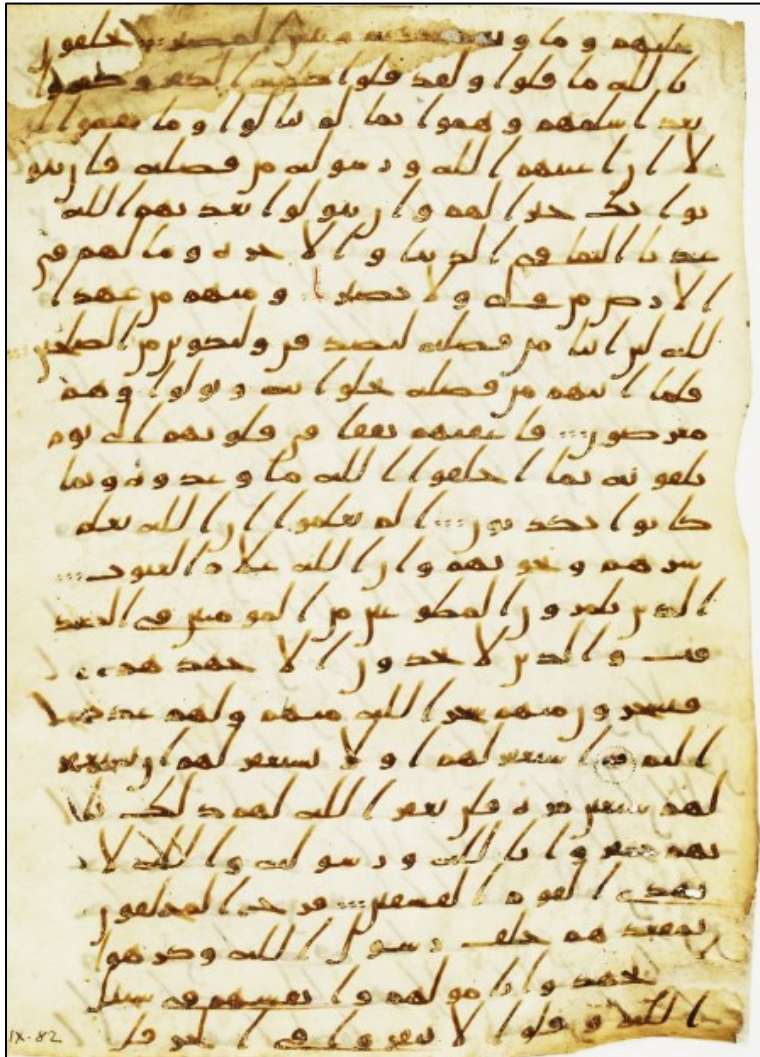 عليهم وماويهم جهنم وبئس المصير يحلفون
بالله ما قلوا ولقد قلوا كلمة الكفر وكفروا
بعد اسلمهم وهموا بما لم ينالوا وما نقموا ا
لا ان اغنيهم الله ورسوله من فضله فان يتو
بوا يك خيرا لهم وان يتولوا يعذبهم الله
عذبا اليما في الدنيا والاخرة وما لهم في
الارض من ولي ولا نصير ومنهم من عهد ا
لله لئن اتينا من فضله لنصدقن ولنكونن من الصلحين
فلما اتيهم من فضله بخلوا به وتولوا وهم
معرضون فاعقبهم نفقا في قلوبهم الى يوم
يلقونه بما اخلفوا الله ما وعدوه وبما
كانوا يكذبون الم يعلموا ان الله يعلم
سرهم ونجويهم وان الله علام الغيوب
الذين يلمزون المطوعين من المومنين في الصد
قت والذين لا يجدون الا جهدهم
فيسخرون منهم سخر الله منهم ولهم عذاب
اليم استغفر لهم او لا تستغفر لهم ان تستغفر
لهم سبعين مرة فلن يغفر الله لهم ذلك با
نهم كفروا بالله ورسوله والله لا
يهدي القوم الفسقين فرح المخلفون
بمقعدهم خلف رسول الله وكرهوا
يجهدوا بامولهم وانفسهم في سبيل
الله وقلوا لا تنفروا في الحر قل
IX-82